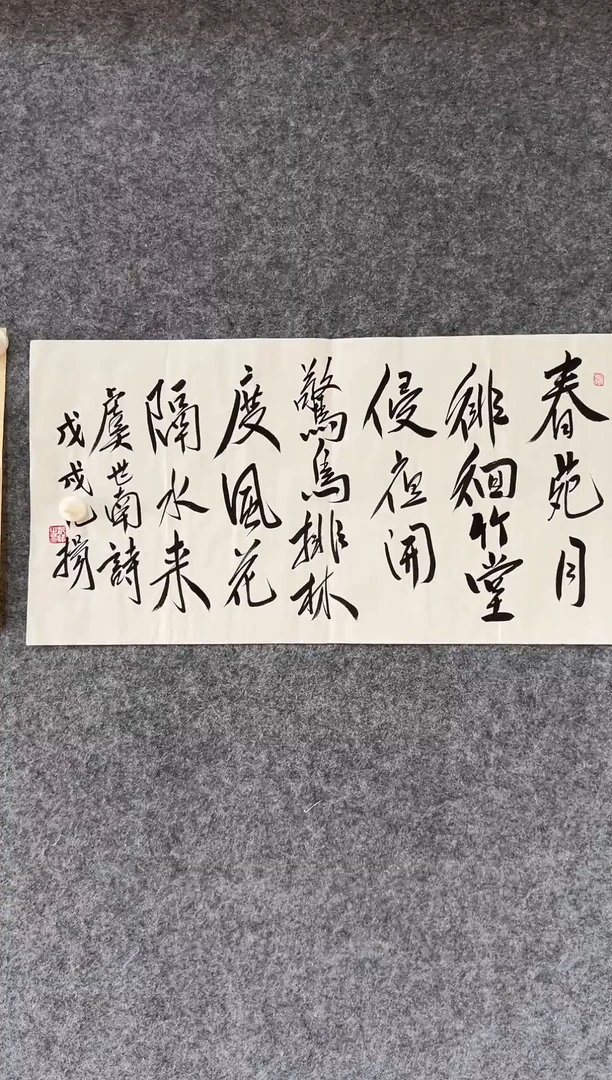 春苑月
徘徊竹堂
侵夜開
驚鳥排林
度風花
隔水来
虞世南詩
戊戌